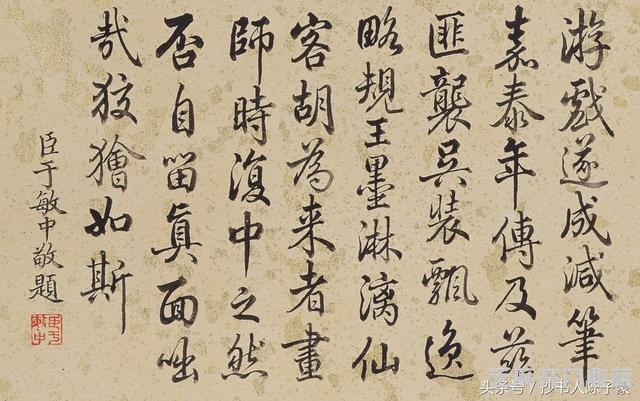 游戲遂成減筆
嘉泰年傳及茲
匪襲吳裝飄逸
略規王墨淋漓仙
客胡為来者畫
師時復中之然
否自留眞面咄
哉狡獪如斯
臣于敏中敬題
头条号 / 抄书人陈子豪